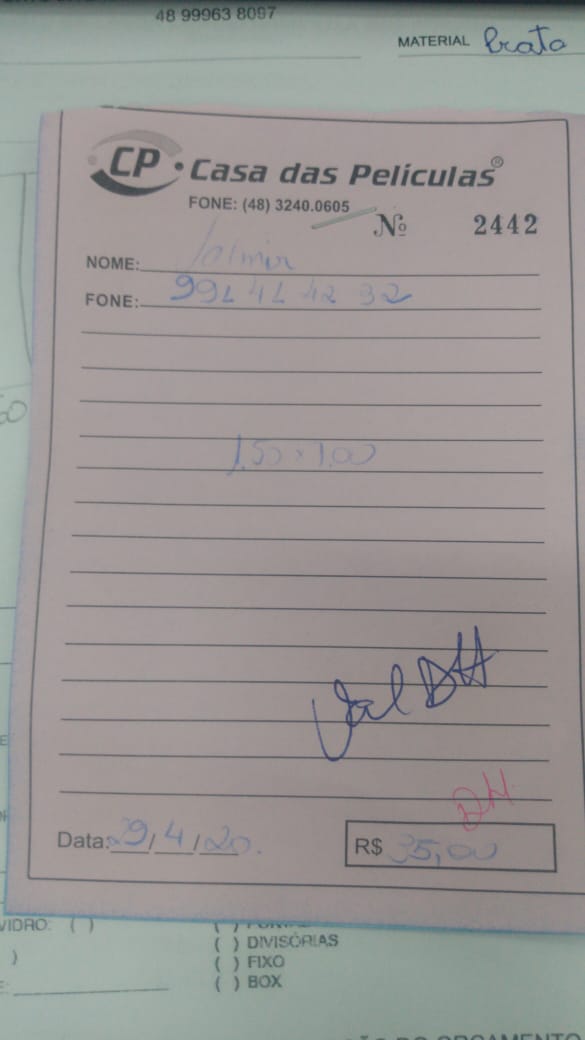 48 99963 8097
MATERIAL Prata
CP Casa das Películas®
FONE: (48) 3240.0605
Nº 2442
NOME:
FONE: 991 41 42 32
1,50 x 1,00
DH
Data: 29/4/20.
R$ 35,00
VIDRO: ( )
( ) DIVISÓRIAS
)
( ) FIXO
( ) BOX